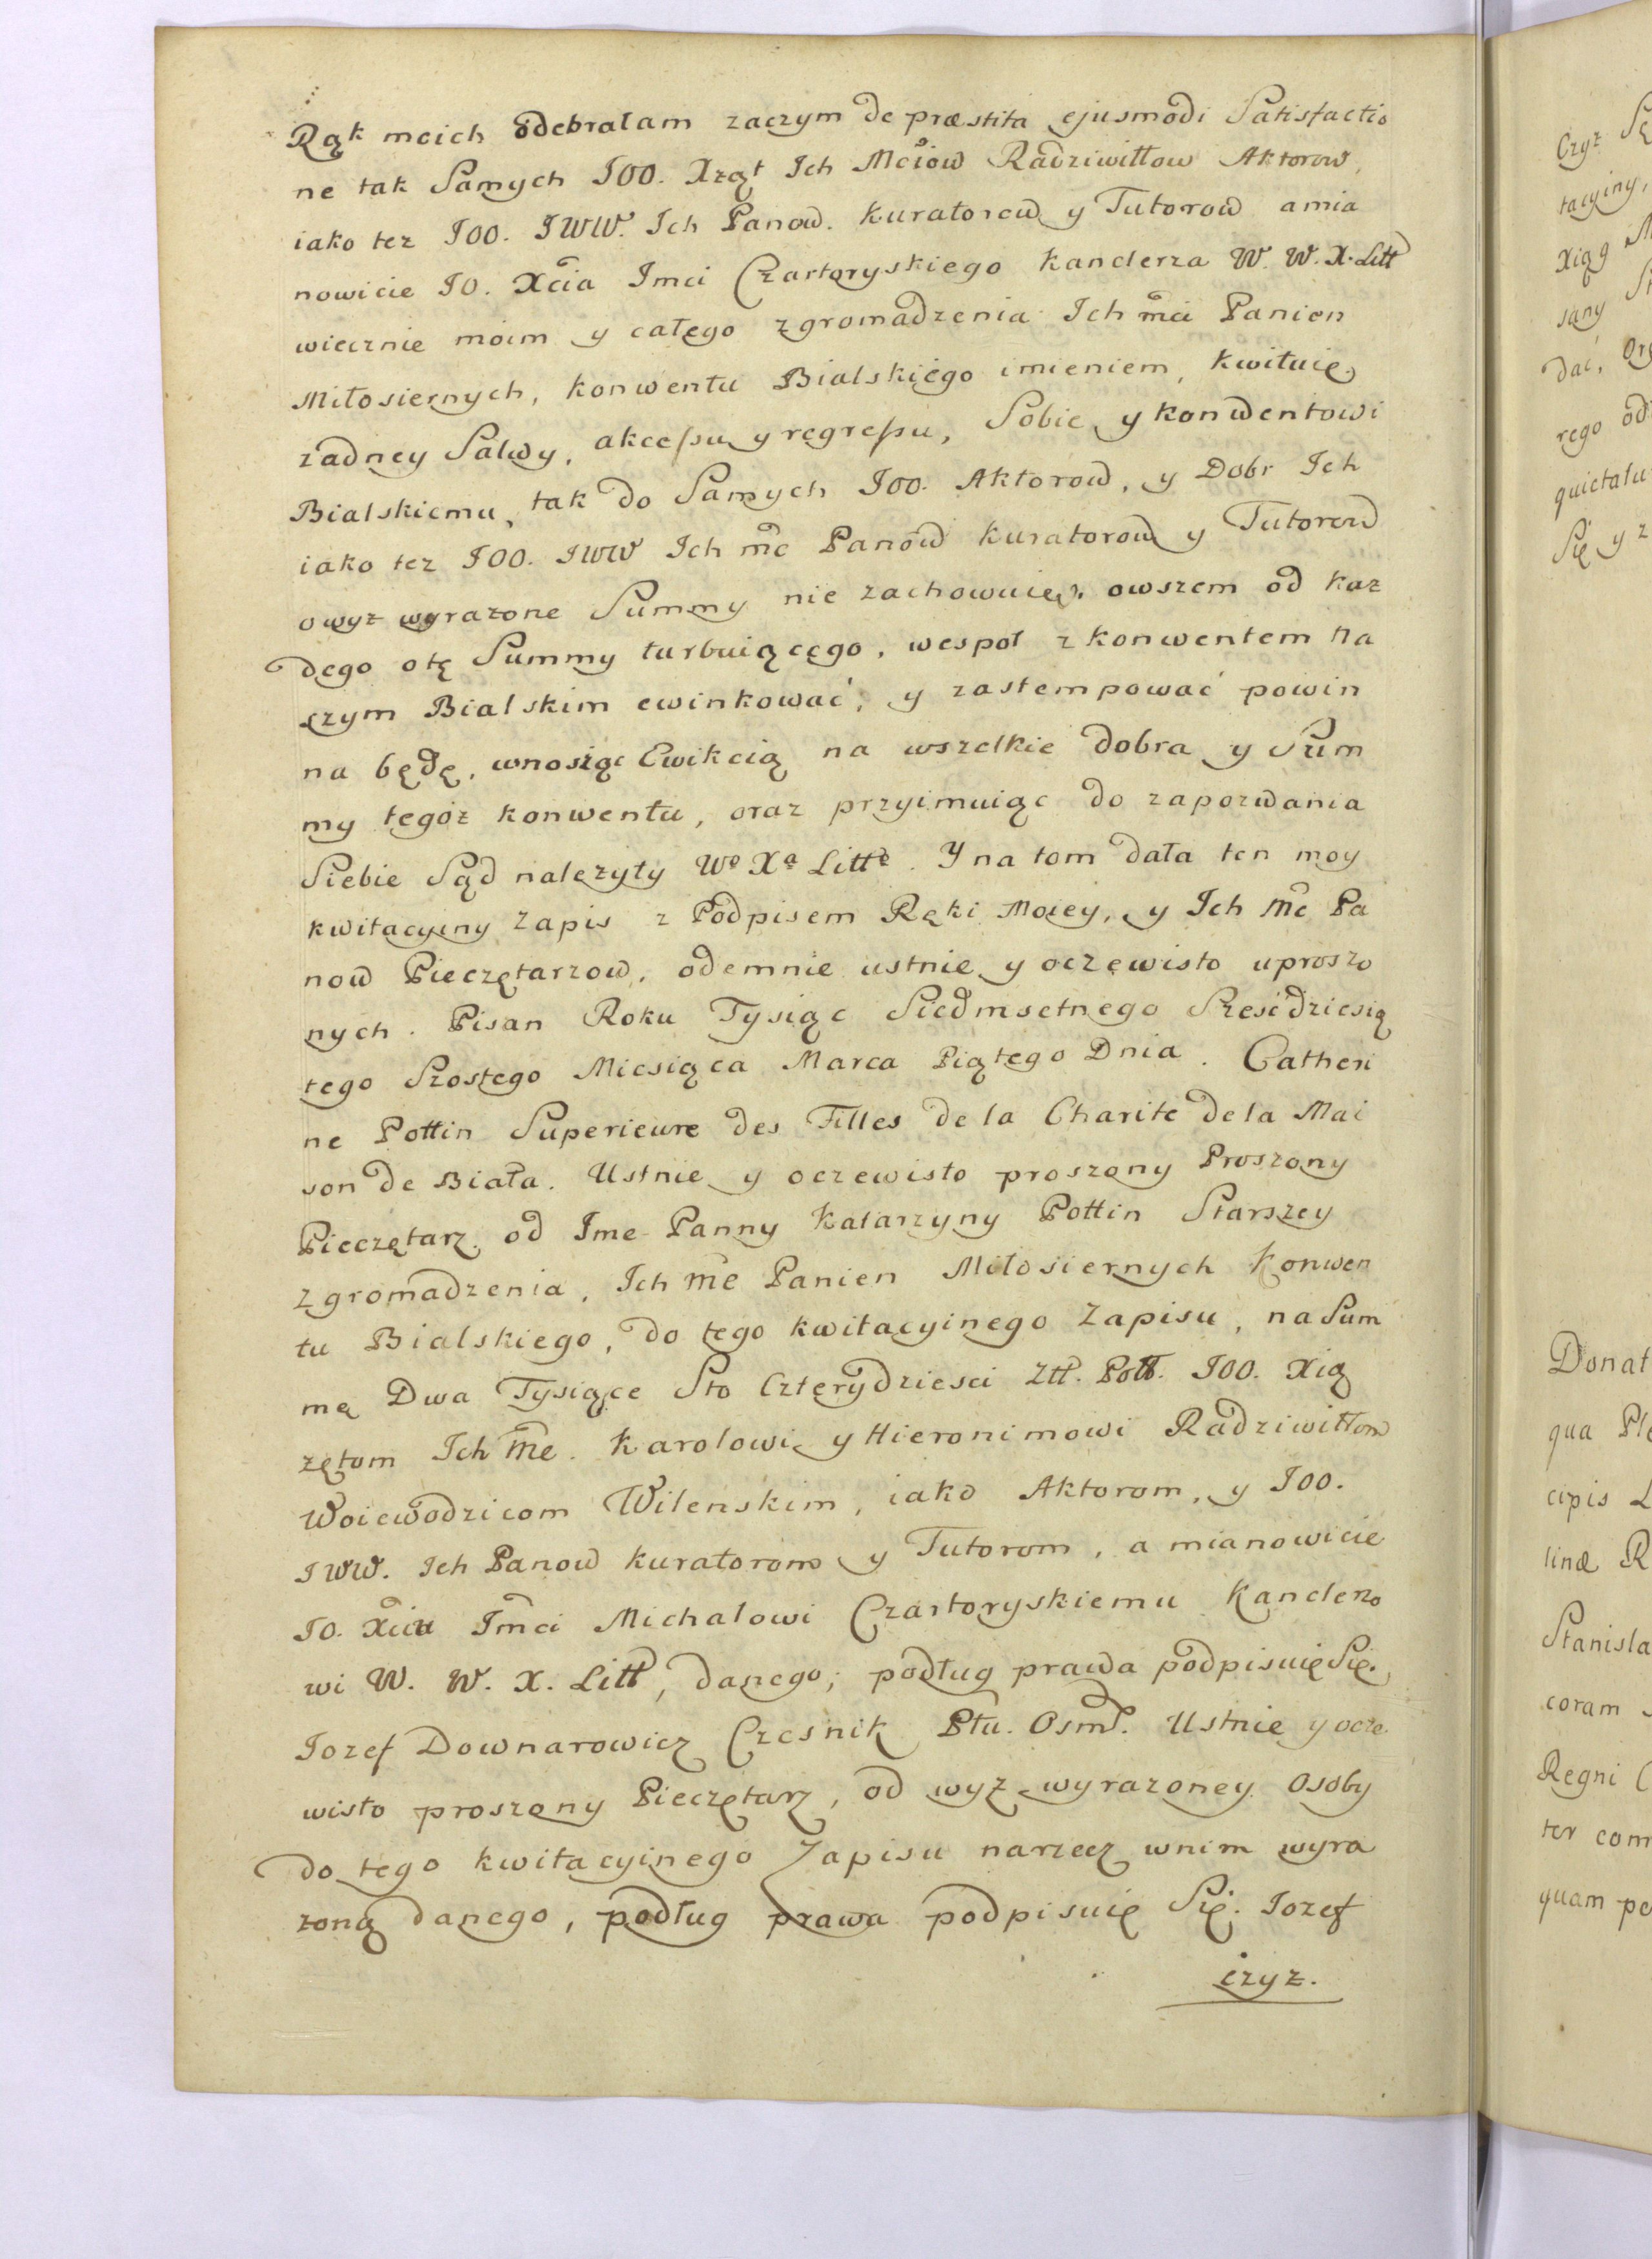 Rąk moich odebrałam zaczym de præstita ejusmodi Satisfactio
ne tak Samych JOO. Xząt Ich Mciow Radziwiłłow Aktorow,
iako tez JOO. JWW. Ich Panow. Kuratorow y Tutorow amia
nowicie JO. Xcia Jmci Czartoryskiego Kanclerza W. W. X. Litt
wiecznie moim y całego zgromadzenia Ich mci Panien
Miłosiernych, konwentu Bialskiego imieniem, kwituię.
zadney Salwy, akcessu y regressu, Sobie y konwentowi
Bialskiemu, tak do Samych JOO. Aktorow, y Dobr Ich
iako tez JOO. JWW Ich mc Panow Kuratorow y Tutorow
owyz wyrazone Summy nie zachowuię, owszem od kaz
dego otę Summy turbuiącego, wespoł z konwentem na
szym Bialskim ewinkować, y zastempować powin
na będę, wnosząc Ewikcią na wszelkie dobra y Sum
my tegoz konwentu, oraz przyimuiąc do zapozwania
Siebie Sąd nalezyty Wo Xa Litto. Y na tom dała ten moy
kwitacyiny Zapis z Podpisem Ręki Moiey, y Ich Mc Pa
now Pieczętarzow, odemnie ustnie y oczewisto uproszo
nych. Pisan Roku Tysiąc Siedmsetnego Sześćdziesią
tego Szostego Miesiąca Marca Piątego Dnia. Catheri
ne Pottin Superieure des Filles de la Charite de la Mai
son de Biała. Ustnie y oczewisto proszony Proszony
Pieczętarz od Jme Panny Katarzyny Pottin Starszey
Zgromadzenia, Ich Mc Panien Miłosiernych Konwen
tu Bialskiego, do tego kwitacyinego Zapisu, na Sum
mę Dwa Tysiące Sto Czterydziesci Ztł. Poll. JOO. Xią
zętom Ich Mc. Karolowi y Hieronimowi Radziwiłłom
Woiewodzicom Wileńskim, iako Aktorom, y JOO.
JWW. Ich Panow Kuratorom y Tutorom, a mianowicie
JO. Xciu Jmci Michałowi Czartoryskiemu Kanclerzo
wi W. W. X. Litt, danego, podług prawa podpisuię Się.
Iozef Downarowicz Czesnik Ptu. Osmł. Ustnie y ocze
wisto proszony Pieczętarz, od wyz wyrazoney Osoby
do tego kwitacyinego Zapisu narzecz wnim wyra
zoną danego, podług prawa podpisuię Się. Iozef
czyz.
Czyz
tacyiny,
Xiąg
sany
dać,
rego
Się y z
Donat
qua
cipis
linæ R
Stanisla
coram
Regni
ter com
quam pe